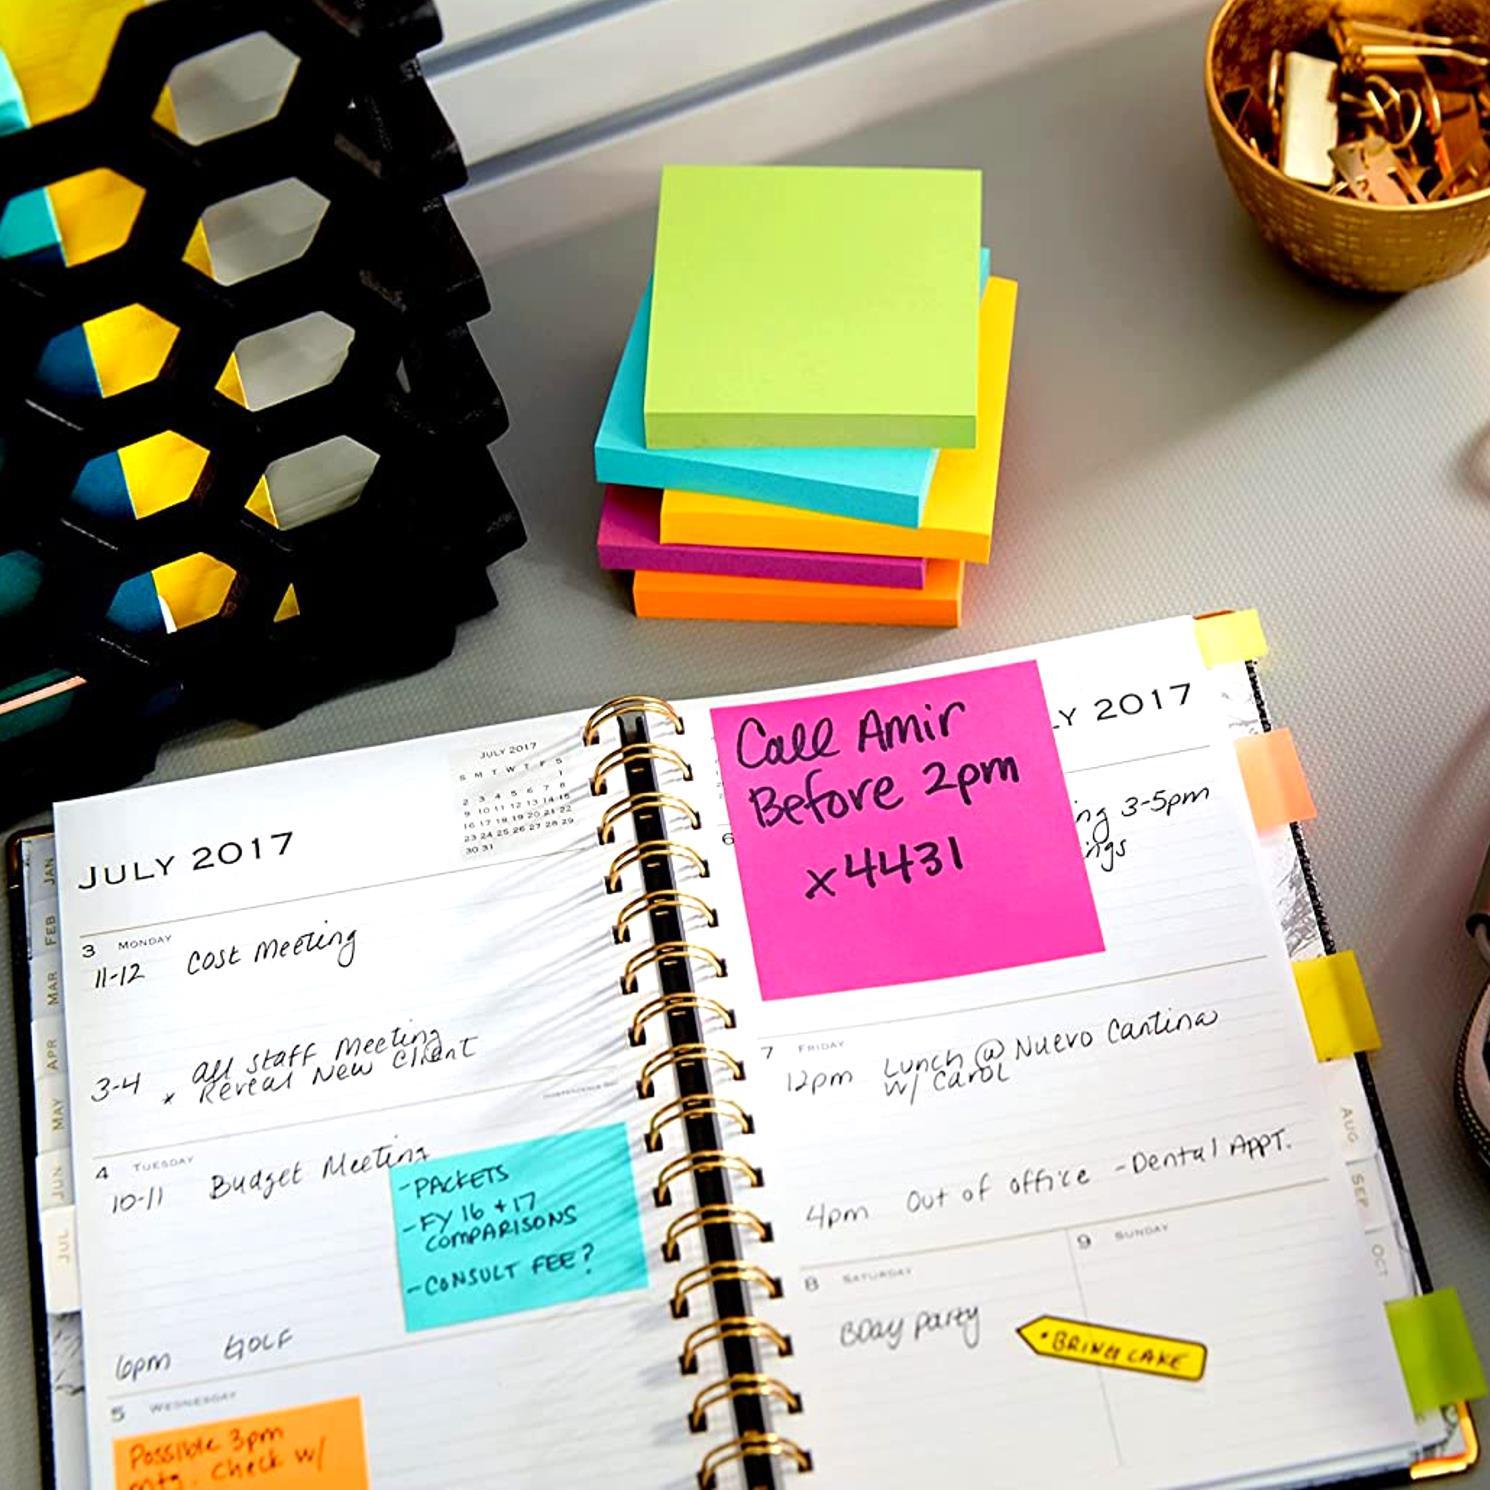 JULY 2017
JULY 2017
S M T W T F S
1
2 3 4 5 6 7 8
9 10 11 12 13 14 15
16 17 18 19 20 21 22
23 24 25 26 27 28 29
30 31
3 MONDAY
11-12 Cost Meeting
All Staff Meeting
3-4 x Reveal New Client
4 TUESDAY
10-11 Budget Meeting
-PACKETS
-FY 16 + 17
COMPARISONS
-CONSULT FEE?
6pm GOLF
5 WEDNESDAY
Possible 3pm
mtg. Check w/
Call Amir
Before 2pm
x4431
LY 2017
6
ng 3-5pm
ings
7 FRIDAY
12pm Lunch @ Nuevo Cantina
w/ Carol
4pm Out of office - Dental Appt.
8 SATURDAY
BDay party
• BRING CAKE
9 SUNDAY
JAN
FEB
MAR
APR
MAY
JUN
JUL
AUG
SEP
OCT